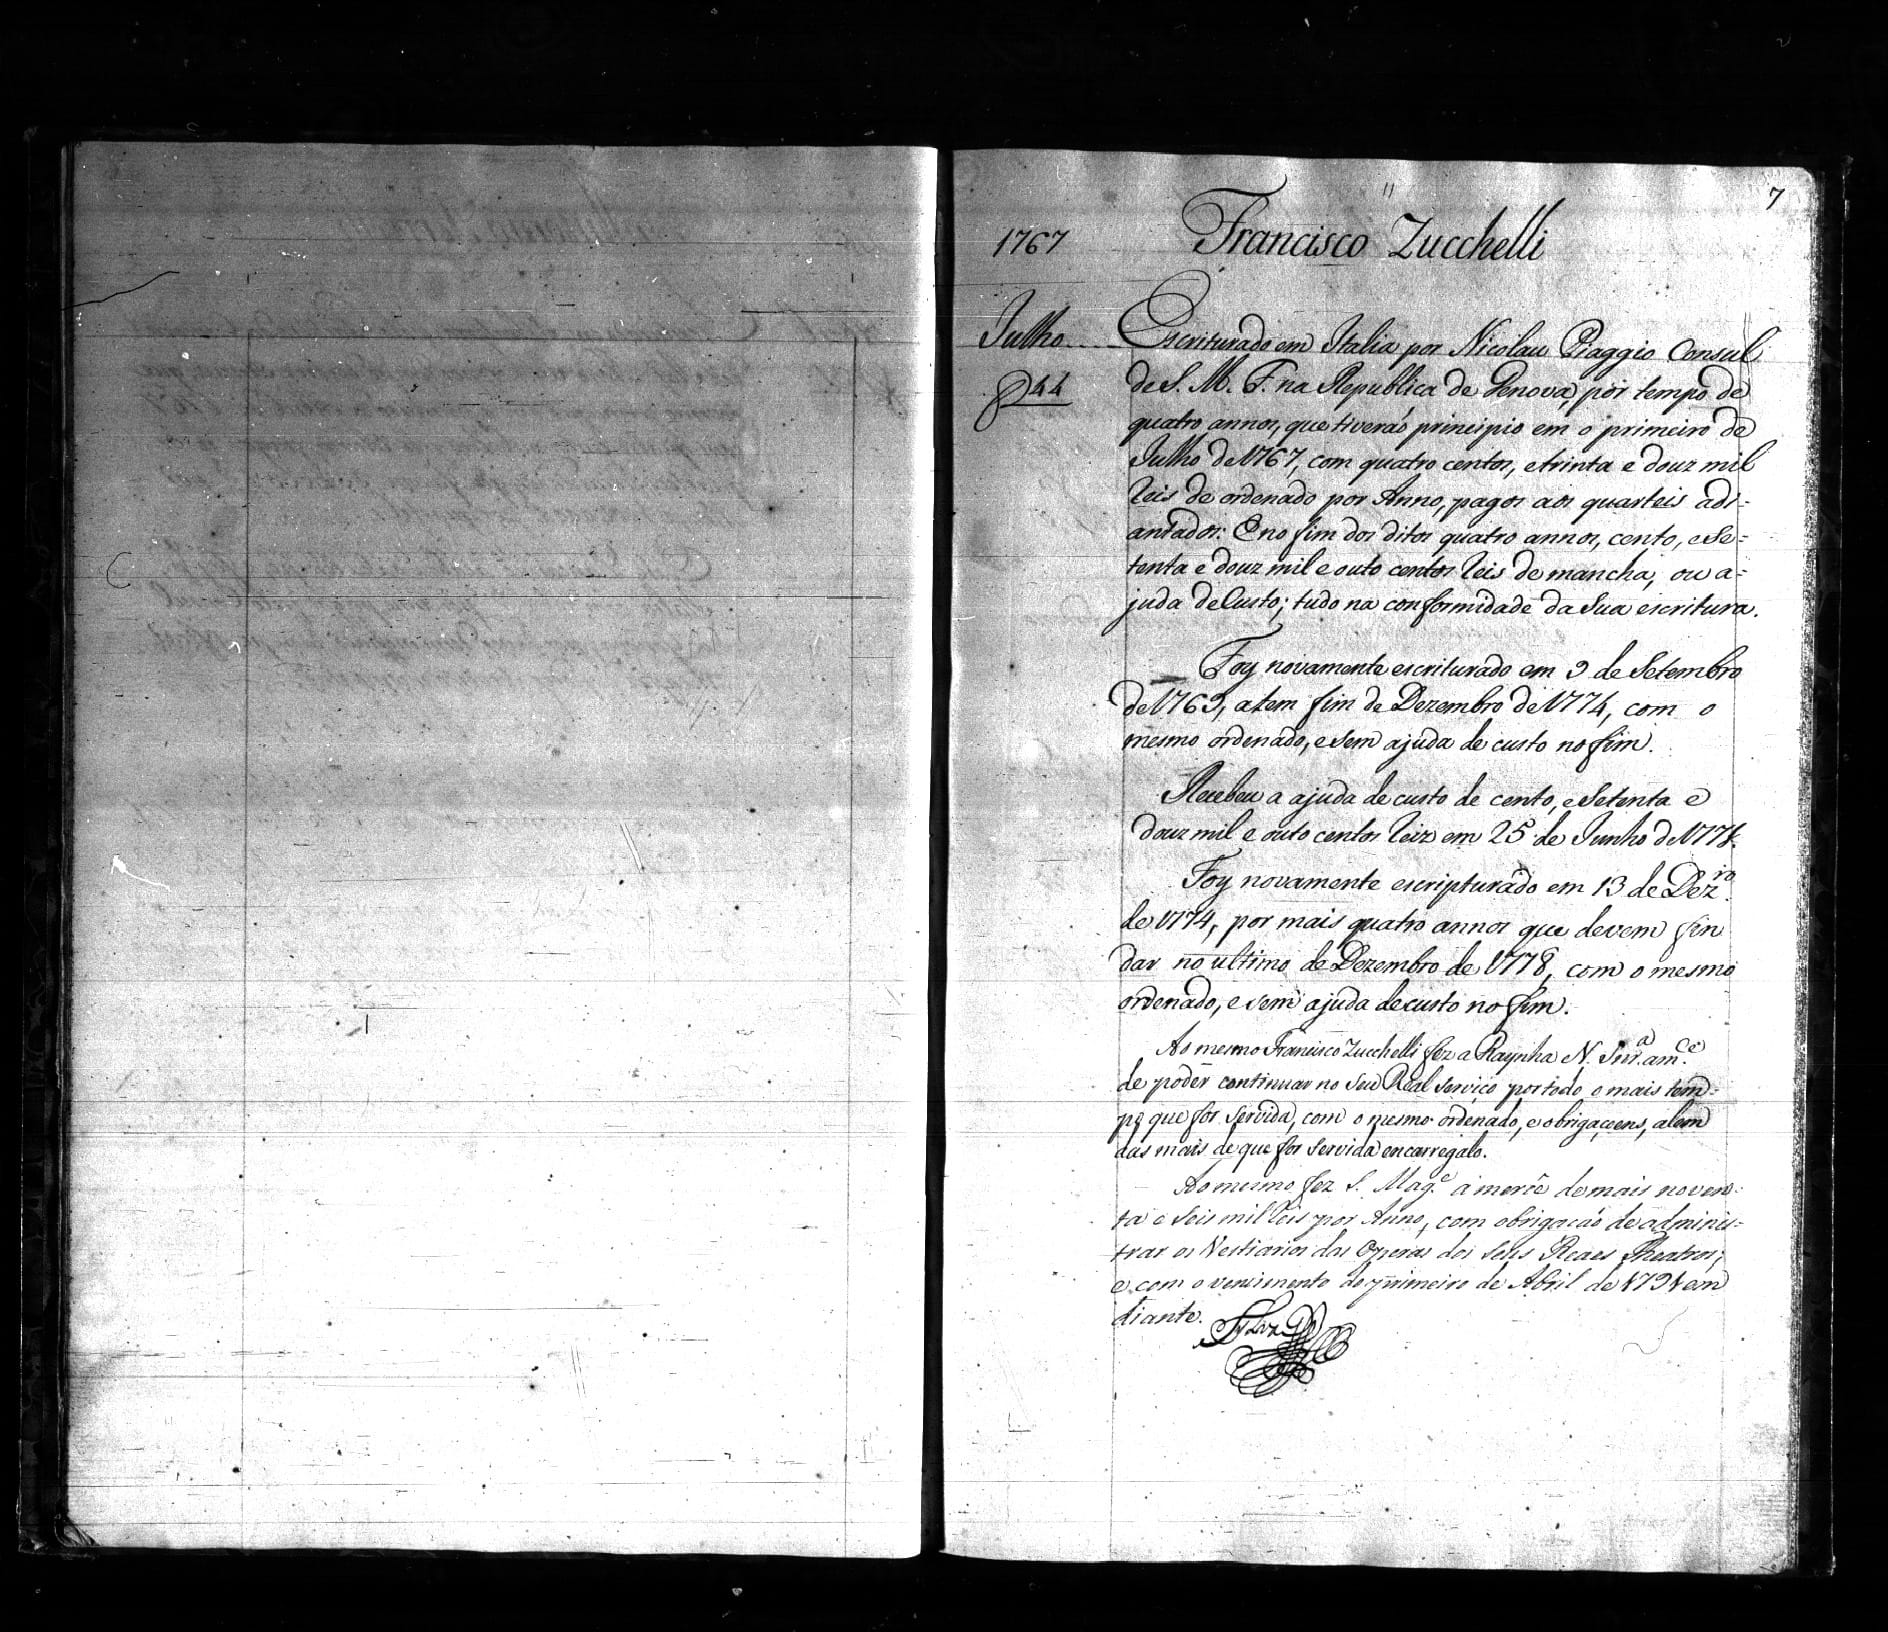 7
1767 Francisco Zucchelli
Julho Escriturado em Italia por Nicolau Piaggio Consul
de S. M. F. na Republica de Genova, por tempo de
quatro annos, que tiveraó principio em o primeiro de
Julho de 1767, com quatro centos, e trinta e douz mil
Reis de ordenado por Anno, pagos aos quarteis adi=
antados: E no fim dos ditos quatro annos, cento, e Se=
tenta e douz mil e outo centos Reis de mancha, ou a=
juda de Custo; tudo na conformidade da Sua escritura.
Foy novamente escriturado em 9 de Setembro
de 1769, athem fim de Dezembro de 1774, com o
mesmo ordenado, e sem ajuda de custo no fim.
Recebeu a ajuda de custo de cento, e Setenta e
douz mil e outo centos Reiz em 25 de Junho de 1771.
Foy novamente escripturado em 13 de Dezro.
de 1774, por mais quatro annos que devem fin
dar no ultimo de Dezembro de 1778, com o mesmo
ordenado, e sem ajuda de custo no fim.
Ao mesmo Francisco Zucchelli fez a Raynha N. Snr.a a m.ce
de poder continuar no Seu Real Serviço por todo o mais tem=
po que for Servida, com o mesmo ordenado, e obrigaçoens, alem
das mais de que for Servida encarregalo.
Ao mesmo fez S. Mag.e a mercê de mais noven=
ta e Seis mil Reis por Anno, com obrigação de adminis=
trar os Vestiarios das Operas dos Seus Reaes Theatros;
e com o vencimento do primeiro de Abril de 1791 em
diante.